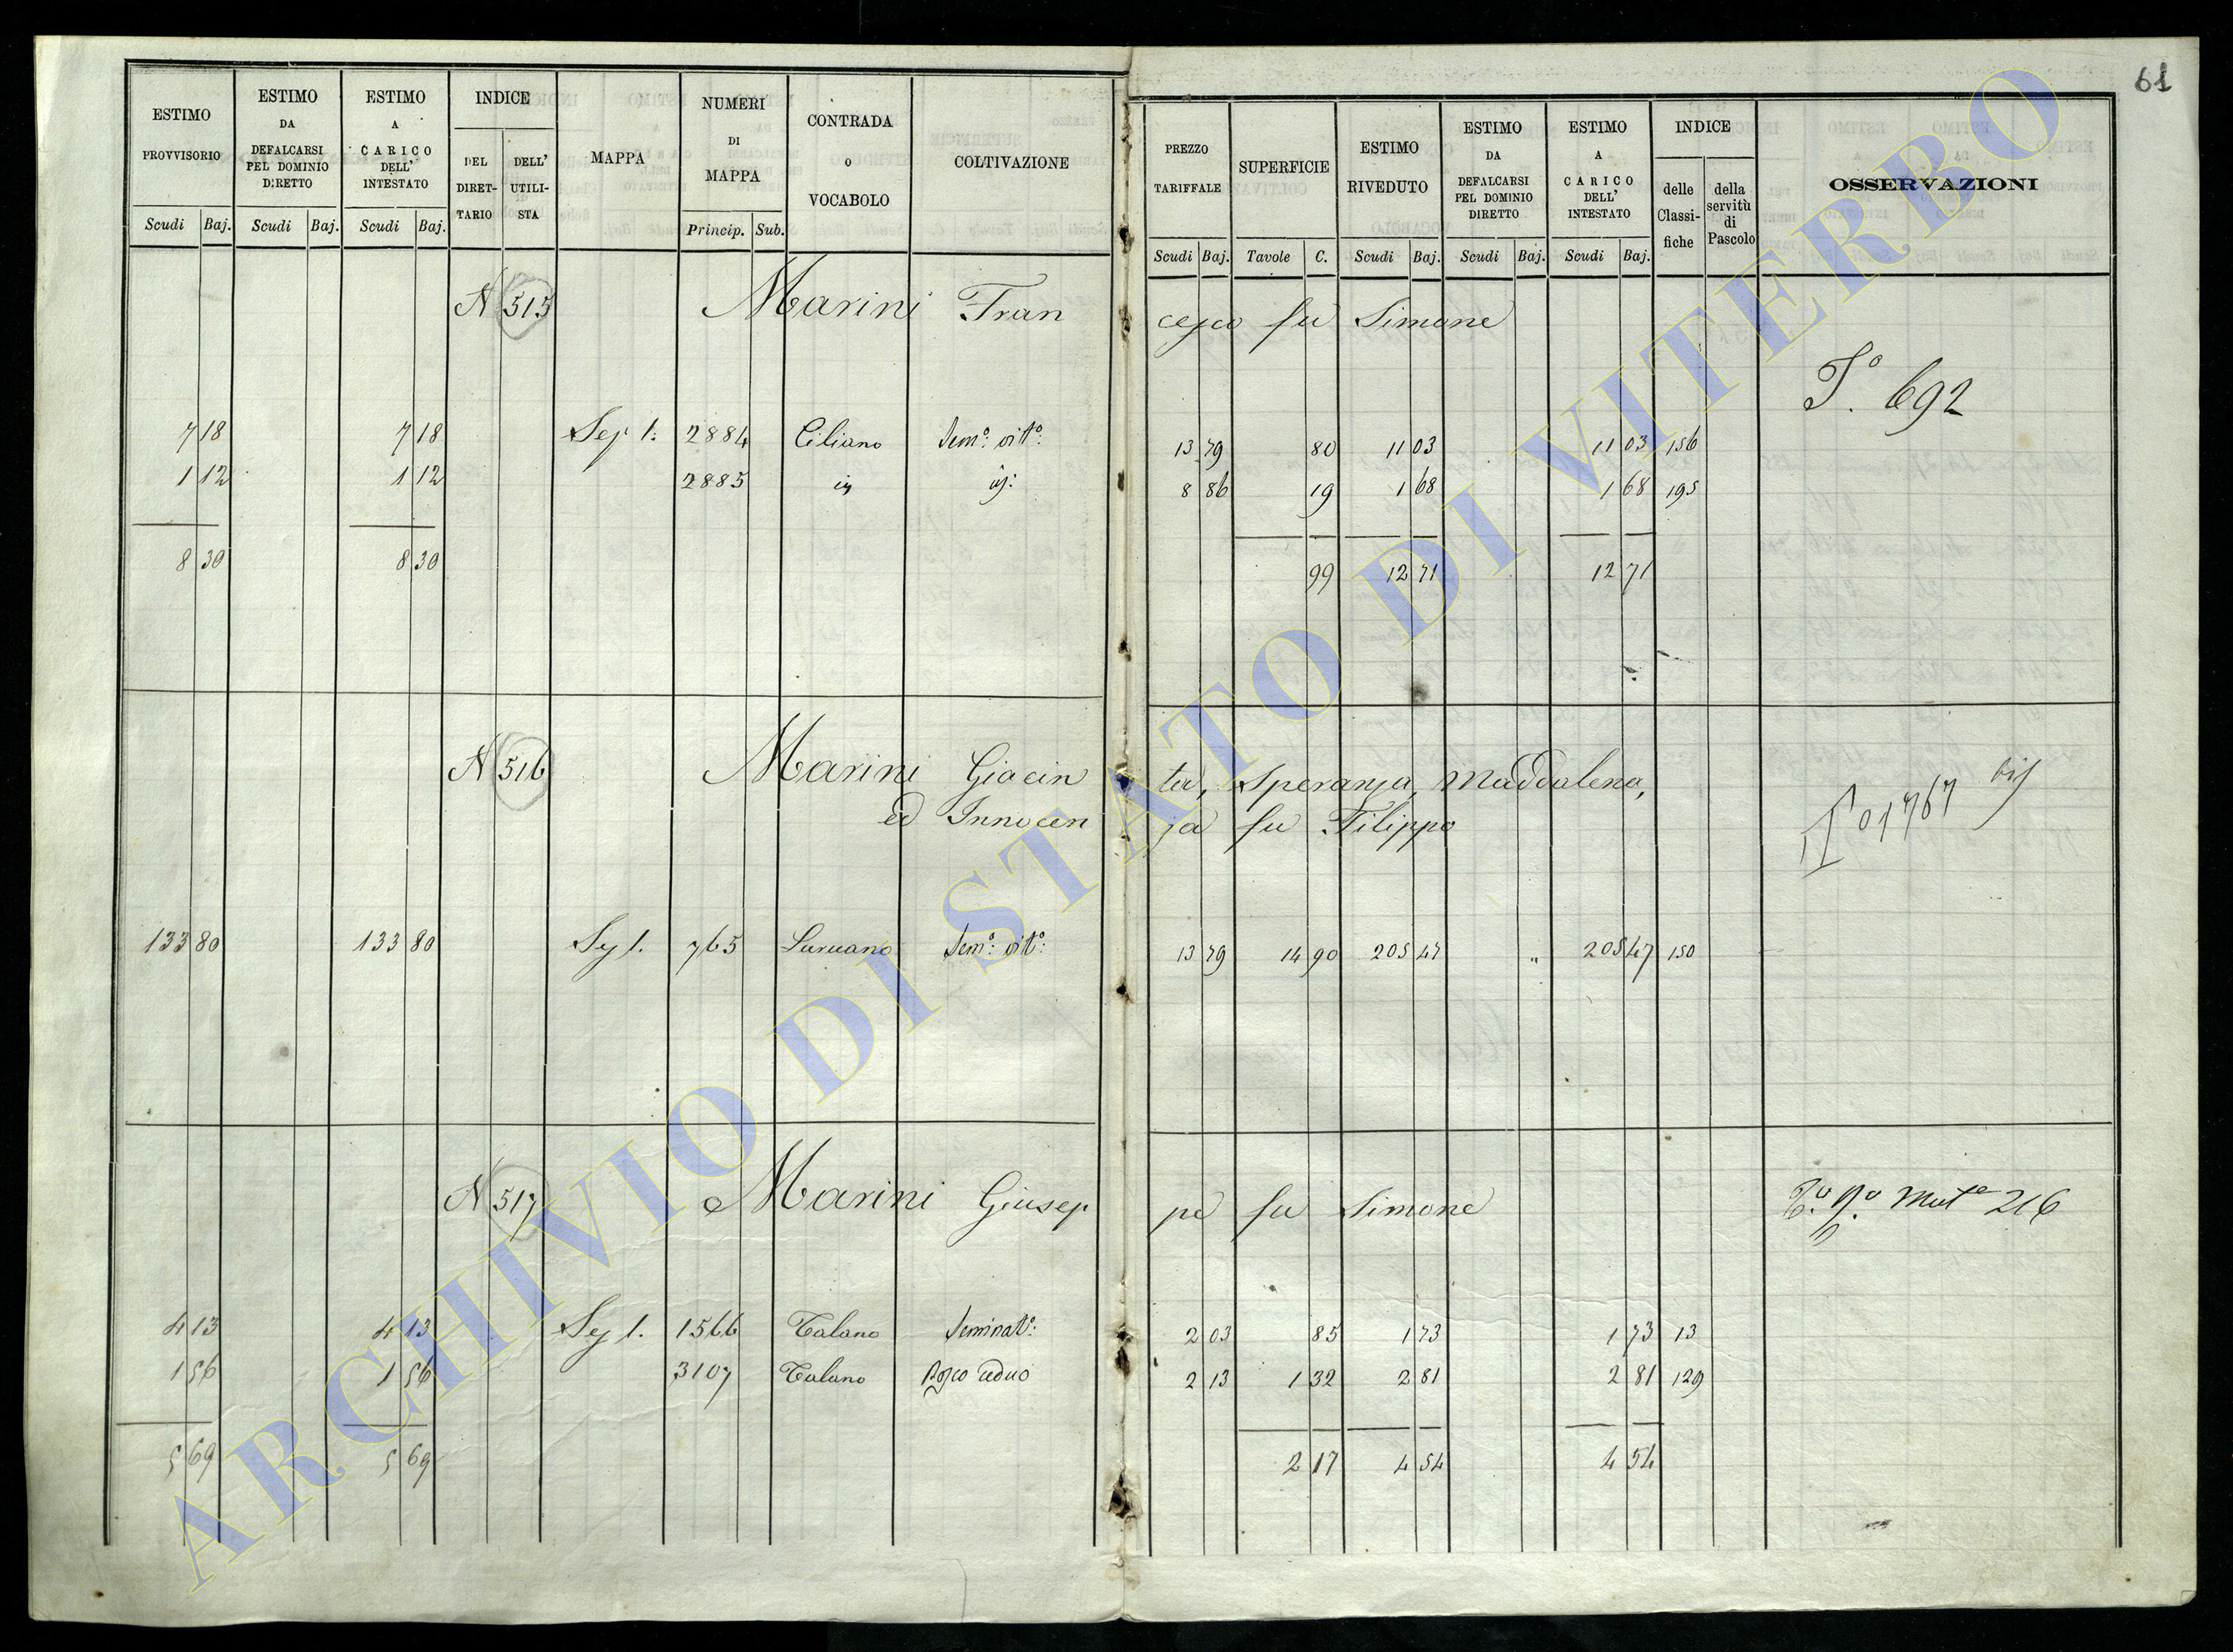 61
ESTIMO PROVVISORIO Scudi Baj.
ESTIMO DA DEFALCARSI PEL DOMINIO DIRETTO Scudi Baj.
ESTIMO A CARICO DELL' INTESTATO Scudi Baj.
INDICE DEL DIRETTARIO DELL' UTILISTA
MAPPA
NUMERI DI MAPPA Princip. Sub.
CONTRADA o VOCABOLO
COLTIVAZIONE
PREZZO TARIFFALE Scudi Baj.
SUPERFICIE Tavole C.
ESTIMO RIVEDUTO Scudi Baj.
ESTIMO DA DEFALCARSI PEL DOMINIO DIRETTO Scudi Baj.
ESTIMO A CARICO DELL' INTESTATO Scudi Baj.
INDICE delle Classifiche della servitù di Pascolo
OSSERVAZIONI
N 515 Marini Francesco fu Simone
692
7 18 7 18 2884 Ciliano Sem.º vit.º: 13 79 80 11 03 11 03 156
1 12 1 12 2885 8 86 19 1 68 1 68 195
8 30 8 30 99 12 71 12 71
N 516 Marini Giacinta, Speranza, Maddalena,
ed Innocenza fu Filippo
1767 bis
133 80 133 80 765 Sem.º vit.º: 13 79 14 90 205 47 " 205 47 150
N 517 Marini Giuseppe fu Simone
216
4 13 4 13 1566 Talano Seminat.º: 2 03 85 1 73 1 73 13
1 56 1 56 3107 Talano Bosco ceduo 2 13 1 32 2 81 2 81 129
5 69 5 69 2 17 4 54 4 54
ARCHIVIO DI STATO DI VITERBO